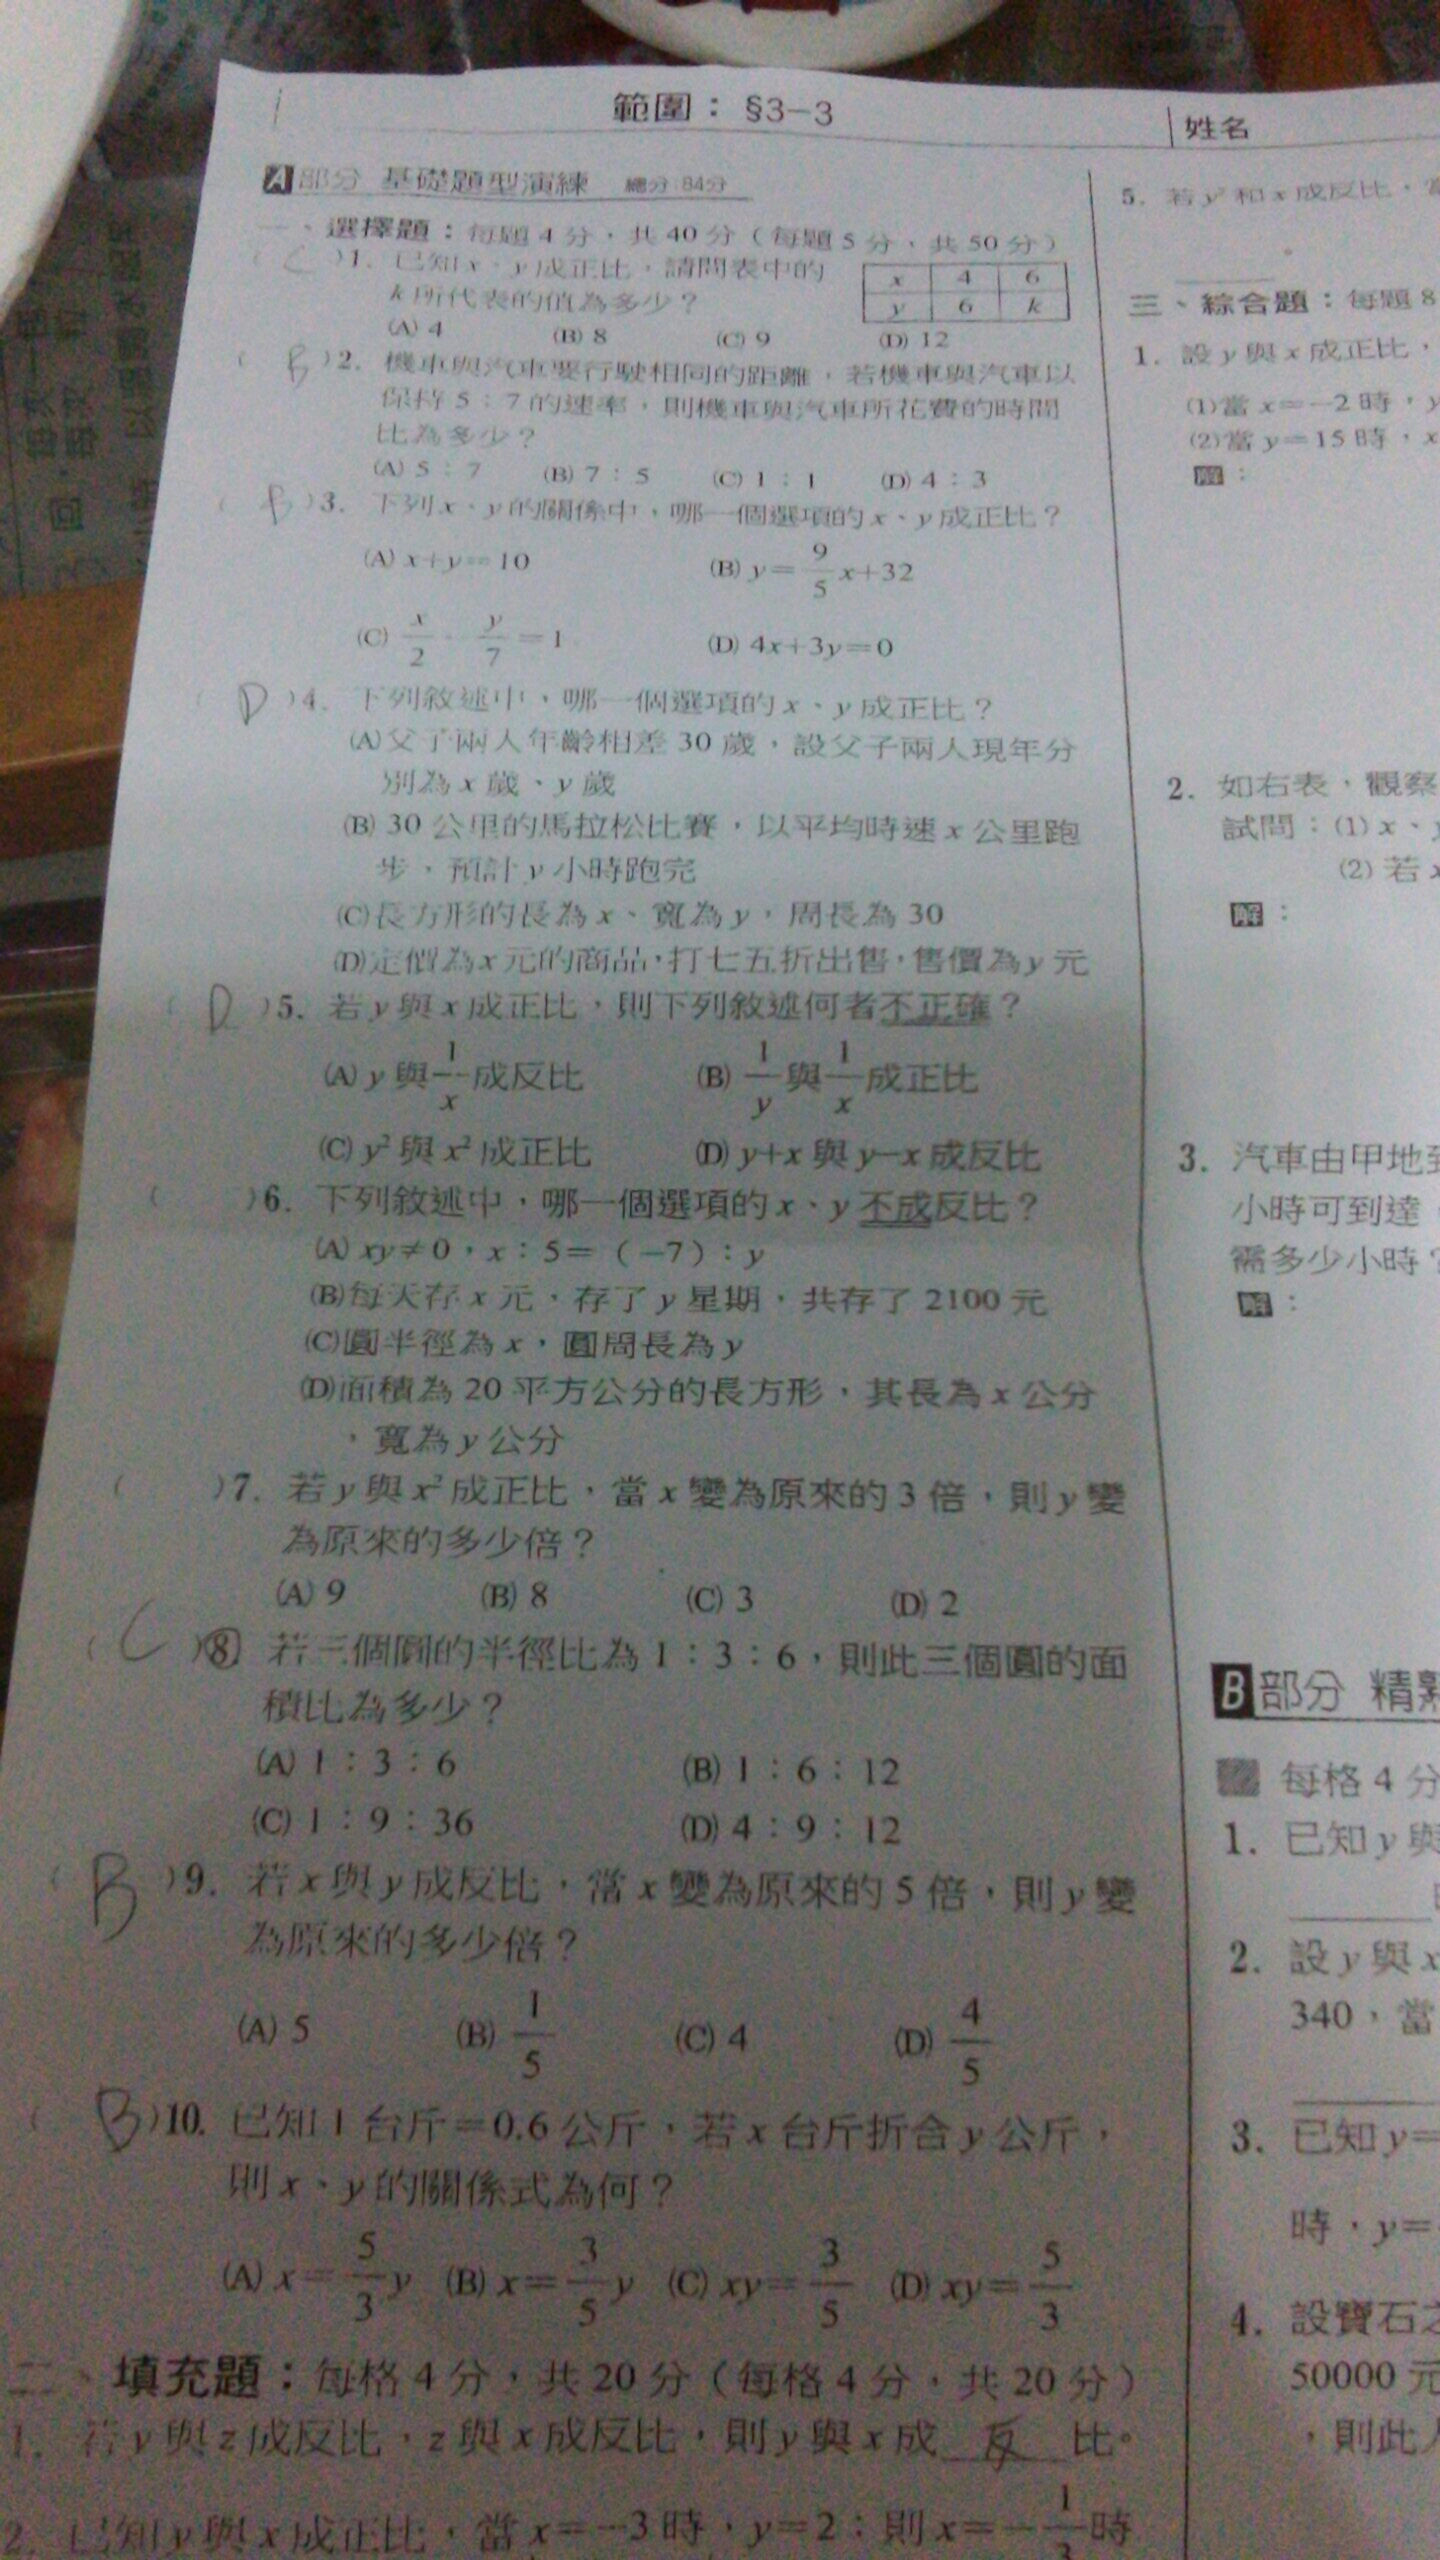 範圍：§3-3
姓名
A部分 基礎題型演練 總分 84分
一、選擇題：每題 4 分，共 40 分（每題 5 分，共 50 分）
( C )1. 已知 x、y 成正比，請問表中的
k 所代表的值為多少？
x 4 6
y 6 k
(A) 4 (B) 8 (C) 9 (D) 12
( B )2. 機車與汽車要行駛相同的距離，若機車與汽車以
保持 5：7 的速率，則機車與汽車所花費的時間
比為多少？
(A) 5：7 (B) 7：5 (C) 1：1 (D) 4：3
( B )3. 下列 x、y 的關係中，哪一個選項的 x、y 成正比？
(A) x+y=10 (B) y=9/5 x+32
(C) x/2 y/7 =1 (D) 4x+3y=0
( D )4. 下列敘述中，哪一個選項的 x、y 成正比？
(A)父子兩人年齡相差 30 歲，設父子兩人現年分
別為 x 歲、y 歲
(B) 30 公里的馬拉松比賽，以平均時速 x 公里跑
步，預計 y 小時跑完
(C)長方形的長為 x、寬為 y，周長為 30
(D)定價為 x 元的商品，打七五折出售，售價為 y 元
( D )5. 若 y 與 x 成正比，則下列敘述何者不正確？
(A) y 與 1/x 成反比 (B) 1/y 與 1/x 成正比
(C) y² 與 x² 成正比 (D) y+x 與 y-x 成反比
( )6. 下列敘述中，哪一個選項的 x、y 不成反比？
(A) xy≠0，x：5=（-7）：y
(B)每天存 x 元，存了 y 星期，共存了 2100 元
(C)圓半徑為 x，圓周長為 y
(D)面積為 20 平方公分的長方形，其長為 x 公分
，寬為 y 公分
( )7. 若 y 與 x² 成正比，當 x 變為原來的 3 倍，則 y 變
為原來的多少倍？
(A) 9 (B) 8 (C) 3 (D) 2
( C )8. 若三個圓的半徑比為 1：3：6，則此三個圓的面
積比為多少？
(A) 1：3：6 (B) 1：6：12
(C) 1：9：36 (D) 4：9：12
( B )9. 若 x 與 y 成反比，當 x 變為原來的 5 倍，則 y 變
為原來的多少倍？
(A) 5 (B) 1/5 (C) 4 (D) 4/5
( B )10. 已知 1 台斤=0.6 公斤，若 x 台斤折合 y 公斤，
則 x、y 的關係式為何？
(A) x=5/3 y (B) x=3/5 y (C) xy=3/5 (D) xy=5/3
二、填充題：每格 4 分，共 20 分（每格 4 分，共 20 分）
1. 若 y 與 z 成反比，z 與 x 成反比，則 y 與 x 成 反 比。
2. 已知 y 與 x 成正比，當 x=-3 時，y=2；則 x=-1/3 時
5. 若 y 和 x 成反比，
三、綜合題：每題 8
1. 設 y 與 x 成正比，
(1)當 x=-2 時，y
(2)當 y=15 時，x
解：
2. 如右表，觀察
試問：(1) x、y
(2) 若 x
解：
3. 汽車由甲地到
小時可到達
需多少小時？
解：
B部分 精熟
每格 4 分
1. 已知 y 與
2. 設 y 與 x
340，當
3. 已知 y=
時，y=
4. 設寶石之
50000 元
，則此人